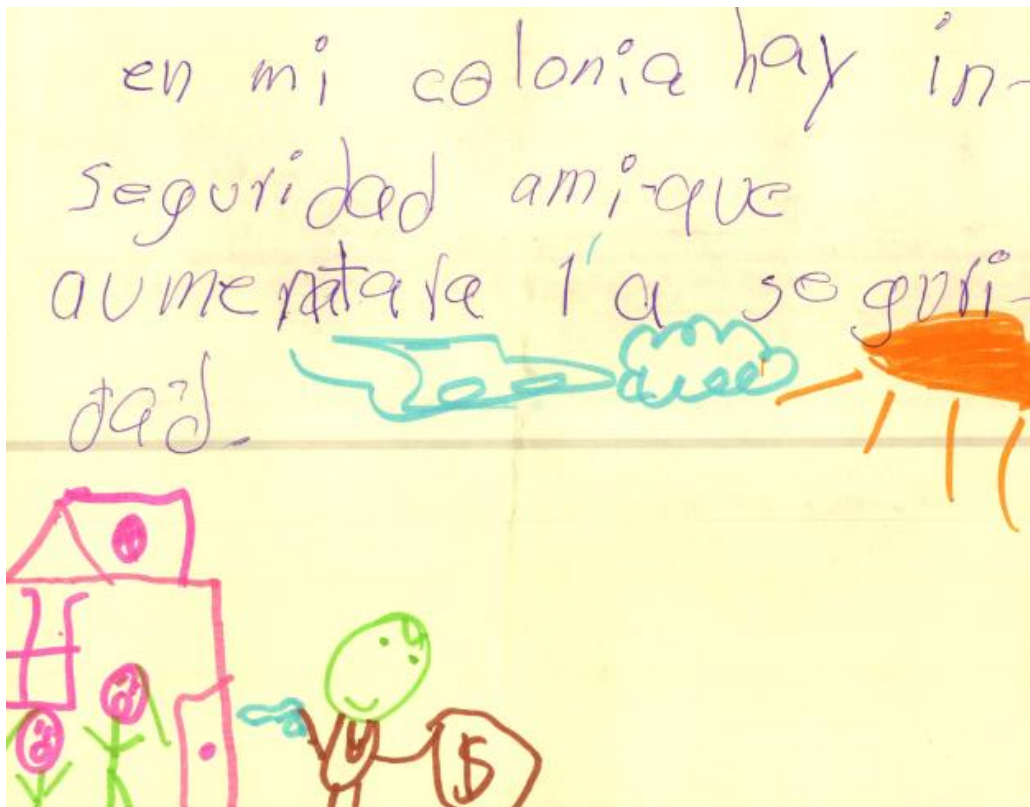 en mi colonia hay in-
seguridad ami que
aumentara la seguri-
dad.
$